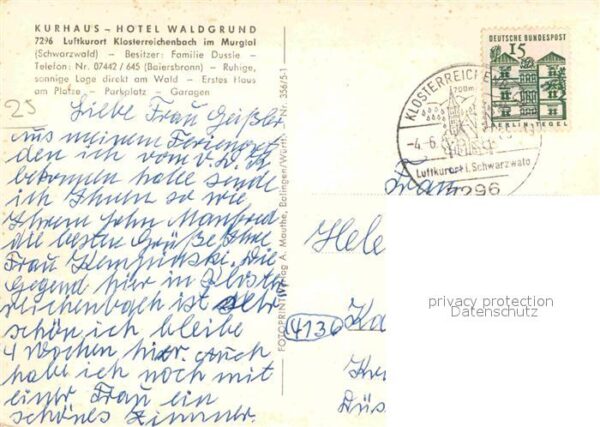 KURHAUS – HOTEL WALDGRUND
7296 Luftkurort Klosterreichenbach im Murgtal
(Schwarzwald) – Besitzer: Familie Dussle –
Telefon: Nr. 07442 / 645 (Baiersbronn) – Ruhige,
sonnige Lage direkt am Wald – Erstes Haus
am Platze – Parkplatz – Garagen
25
Liebe Frau Geißler
aus meinem Ferienort
den ich vom
bekommen habe sende
ich Ihnen so wie
Ihrem Sohn Manfred
die besten Grüße Ihre
Frau Kempinski. Die
Gegend hier in Kloster
reichenbach ist sehr
schön ich bleibe
4 Wochen hier. Auch
habe ich noch mit
einer Frau ein
schönes Zimmer.
FOTOPRINT Verlag A. Mauthe, Balingen/Württ. – Nr. 356/5-1
DEUTSCHE BUNDESPOST
15
BERLIN-TEGEL
KLOSTERREICHE
700m
-4.6.
Luftkurort i. Schwarzwald
7296
Frau
Hele
4136
Ka
Kr
Düs
privacy protection
Datenschutz